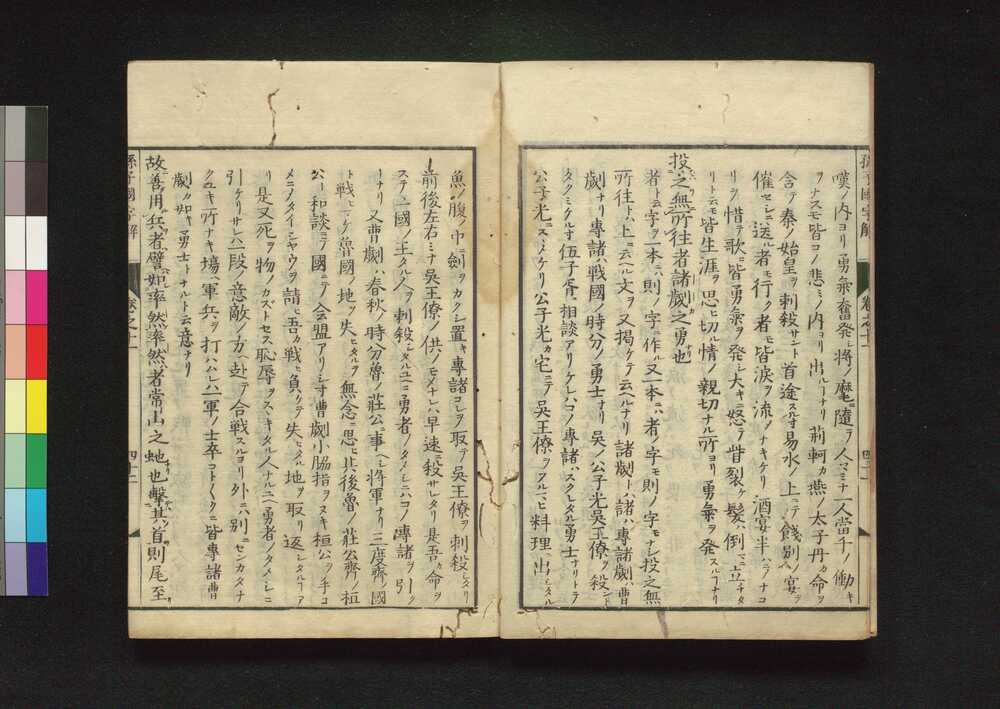 嘆ノ内ヨリ勇氣奮發シ將ノ麾ニ隨テ人マミナ一人當千ノ働キ
ヲナスモ皆コノ悲ミノ内ヨリ出ルナリ荊軻カ燕ノ太子丹カ命ヲ
含テ秦ノ始皇ヲ刺殺サント首途スル寸易水ノ上ニテ餞別ノ宴ヲ
催セシニ送ル者モ行ク者モ皆涙ヲ流シナキケリ酒宴半ハニナコ
リヲ惜テ歌ニ皆勇氣ヲ発シ大キニ怒テ眥裂ケ髪ハ倒ニ立チタ
リト云モ皆生涯ヲ思ヒ切ル情ノ親切ナル所ヨリ勇氣ヲ發スルナリ
投之無所往者諸劌之勇也
者ト云字ヲ一本ニハ則ノ字ニ作ル又一本ニハ者ノ字モ則ノ字モナシ投之無
所往トハ上ニ云ヘル文ヲ又掲ケテ云ヘルナリ諸劌トハ諸ハ專諸劌ハ曹
劌ナリ專諸ハ戰國ノ時分ノ勇士ナリ吳ノ公子光吳王僚ヲ殺シ
タクミケル寸伍子胥ニ相談アリケレハコノ專諸ハスクレタル勇士ナリトテ
公子光ニスヽメケリ公子光カ宅ニテ吳王僚ヲフルマヒ料理ニ出シタル
魚ノ腹ノ中ニ劍ヲカクシ置キ專諸コレヲ取テ吳王僚ヲ刺殺シタリ
前後左右ミナ吳王僚ノ供ノモノナレハ早速ニ殺サレタリ是吾カ命ヲ
ステヽ一國ノ王タル人ヲ刺殺シタルユヘニ勇者ノタメシニハコノ專諸ヲ引ク
ーナリ又曹劌ハ春秋ノ時分魯ノ莊公ニ事ヘシ將軍ナリ三度齊國
ト戰ヒマケ魯國ノ地ヲ失ヒタルヲ無念ニ思ヒ其後魯ノ莊公齊ノ桓
公ト和談ニテ國ニテ會盟アリシ寸曹劌小脇指ヲヌキ桓公ヲ手コ
メニノタイシヤウヲ請ヒ吾カ戰ニ負ケテ失ヒタル地ヲ取リ返シタルア
リ是又死ヲ物ノカストセス恥辱ヲスヽキタル人ナルユヘ勇者ノタメシニ
引ケリサレハ一段ノ意敵ノ方ヘ赴テ合戰スルヨリ外ニハ別ニセンカタナ
クユキ所ナキ塲ヘ軍兵ヲ打ハハレハ一軍ノ士卒コトクニ皆專諸曹
劌カ如キ勇士トナルト云意ナリ
故善用兵者譬如率然率然者常山之虵也擊其首則尾至
孫子國字解
卷之十一